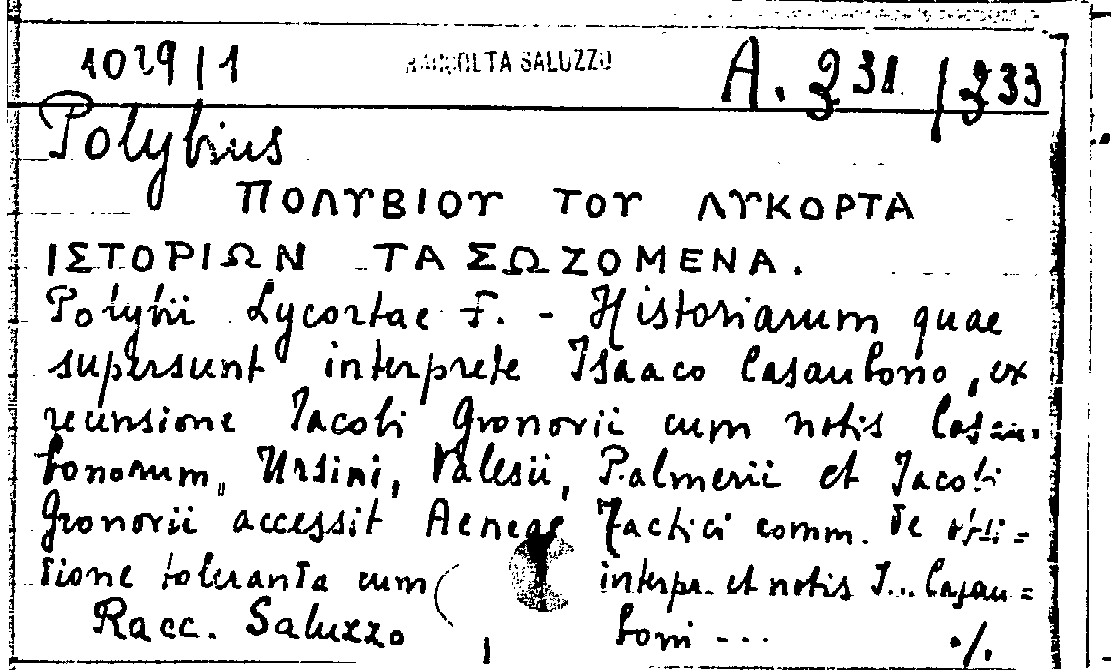 1029/1 RACCOLTA SALUZZO A. 231/233
Polybius
ΠΟΛΥΒΙΟΥ ΤΟΥ ΛΥΚΟΡΤΑ
ΙΣΤΟΡΙΩΝ ΤΑ ΣΩΖΟΜΕΝΑ.
Polybii Lycortae F. - Historiarum quae
supersunt interprete Isaaco Casaubono, ex
recensione Iacobi Gronovii cum notis Casau-
bonorum, Ursini, Valesii, Palmerii et Jacobi
Gronovii accessit Aeneae Tactici comm. de obsi=
dione toleranda cum interpr. et notis I... Casau=
Racc. Saluzzo boni --- ./.